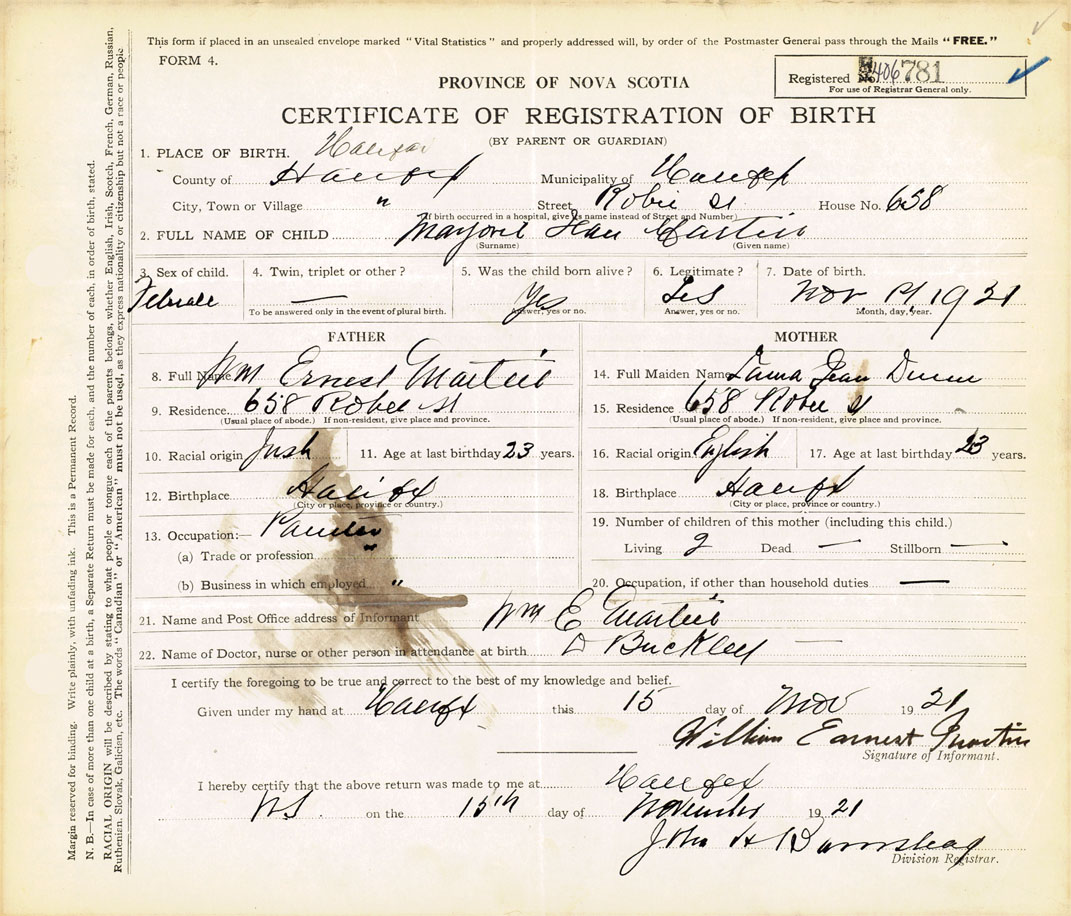 This form if placed in an unsealed envelope marked "Vital Statistics" and properly addressed will, by order of the Postmaster General pass through the Mails "FREE."
FORM 4.
PROVINCE OF NOVA SCOTIA
Registered No. 406781
For use of Registrar General only.
CERTIFICATE OF REGISTRATION OF BIRTH
(BY PARENT OR GUARDIAN)
1. PLACE OF BIRTH. Halifax
County of Halifax Municipality of Halifax
City, Town or Village " Street Robie St House No. 658
(If birth occurred in a hospital, give its name instead of Street and Number)
2. FULL NAME OF CHILD Marjorie Jean Martin
(Surname) (Given name)
3. Sex of child. 4. Twin, triplet or other? 5. Was the child born alive? 6. Legitimate? 7. Date of birth.
Female — Yes Yes Nov 1921
To be answered only in the event of plural birth. Answer, yes or no. Answer, yes or no. Month, day, year.
FATHER MOTHER
8. Full Name Wm Ernest Martin
9. Residence 658 Robie St
(Usual place of abode.) If non-resident, give place and province.
10. Racial origin Irish 11. Age at last birthday 23 years.
12. Birthplace Halifax
(City or place, province or country.)
13. Occupation:— Painter
(a) Trade or profession "
(b) Business in which employed "
14. Full Maiden Name Jean
15. Residence 658 Robie St
(Usual place of abode.) If non-resident, give place and province.
16. Racial origin English 17. Age at last birthday 23 years.
18. Birthplace Halifax
(City or place, province or country.)
19. Number of children of this mother (including this child.)
Living 2 Dead — Stillborn —
20. Occupation, if other than household duties —
21. Name and Post Office address of Informant Wm E Martin
22. Name of Doctor, nurse or other person in attendance at birth D Buckley —
I certify the foregoing to be true and correct to the best of my knowledge and belief.
Given under my hand at Halifax this 15 day of Nov 1921
William Earnest Martin
Signature of Informant.
I hereby certify that the above return was made to me at Halifax
N.S. on the 15th day of November 1921
John H Barnstead
Division Registrar.
Margin reserved for binding. Write plainly, with unfading ink. This is a Permanent Record.
N. B.—In case of more than one child at a birth, a Separate Return must be made for each, and the number of each, in order of birth, stated.
RACIAL ORIGIN will be described by stating to what people or tongue each of the parents belongs, whether English, Irish, Scotch, French, German, Russian,
Ruthenian, Slovak, Galician, etc. The words "Canadian" or "American" must not be used, as they express nationality or citizenship but not a race or people